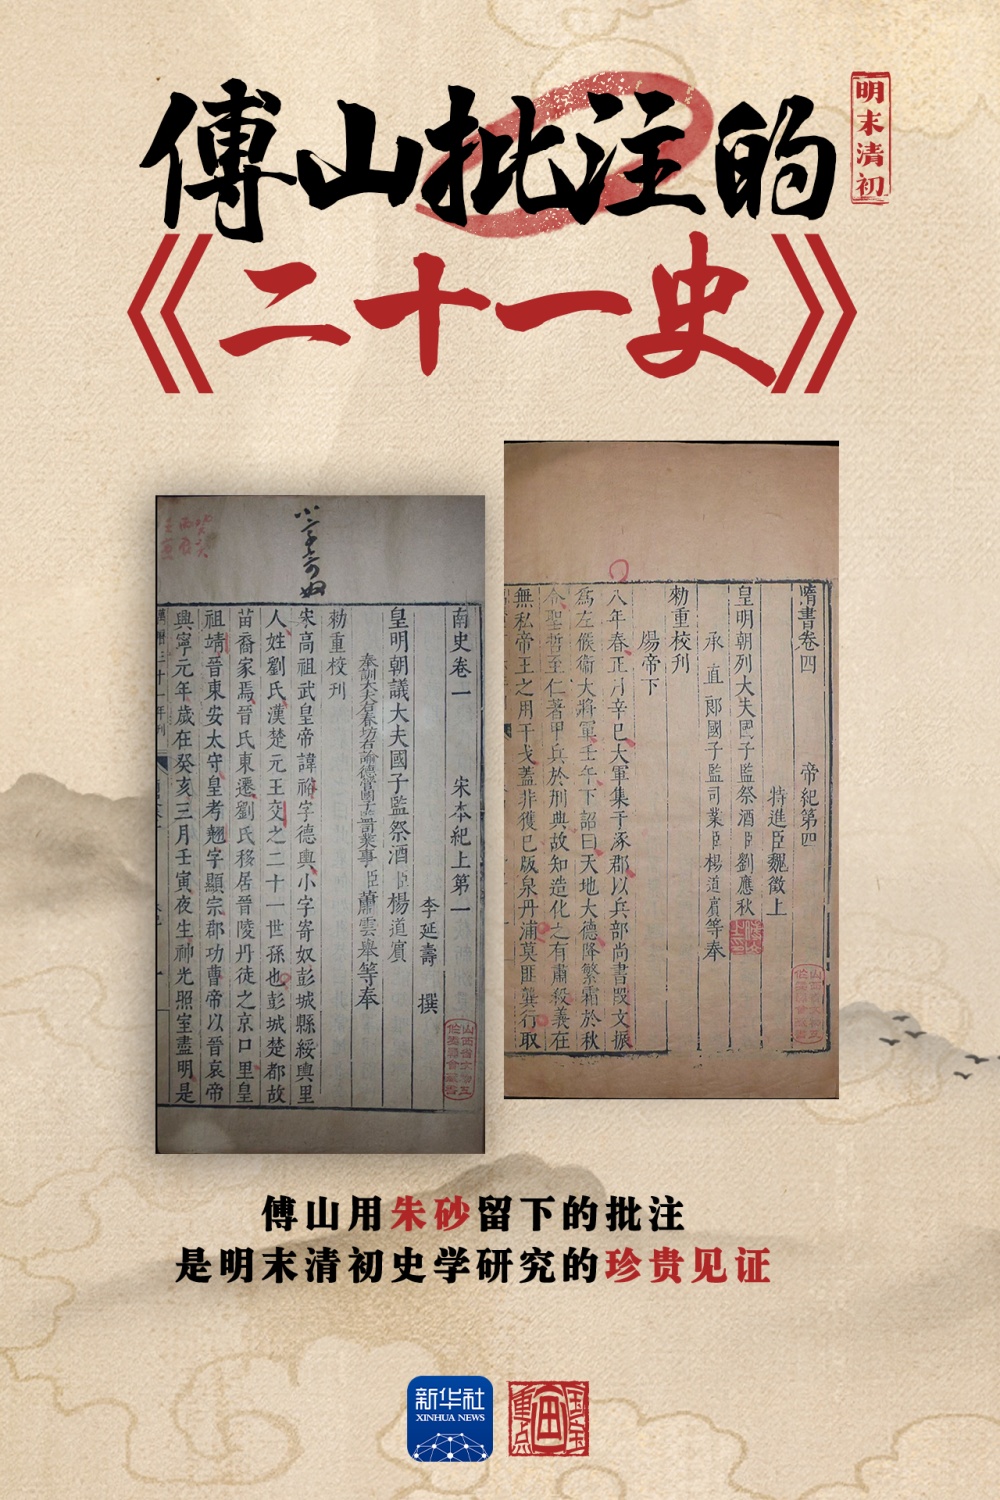 傅山批注的
明末清初
《二十一史》
小字寄奴
南史卷一 宋本紀上第一
李延壽 撰
皇明朝議大夫國子監祭酒臣楊道賓
奉訓大夫右春坊右諭德管國子監司業事臣蕭雲舉等奉
勅重校刋
宋高祖武皇帝諱裕字德輿小字寄奴彭城縣綏輿里
人姓劉氏漢楚元王交之二十一世孫也彭城楚都故
苗裔家焉晉氏東遷劉氏移居晉陵丹徒之京口里皇
祖靖晉東安太守皇考翹字顯宗郡功曹帝以晉哀帝
興寧元年歲在癸亥三月壬寅夜生神光照室盡明是
隋書卷四 帝紀第四
特進臣魏徵上
皇明朝列大夫國子監祭酒臣劉應秋
承直郎國子監司業臣楊道賓等奉
勅重校刋
煬帝下
八年春正月辛巳大軍集于涿郡以兵部尚書段文振
爲左候衞大將軍壬午下詔曰天地大德降繁霜於秋
令聖哲至仁著甲兵於刑典故知造化之有肅殺義在
無私帝王之用干戈蓋非獲已版泉丹浦莫匪龔行取
傅山用朱砂留下的批注
是明末清初史学研究的珍贵见证
新华社
XINHUA NEWS
重点
国宝